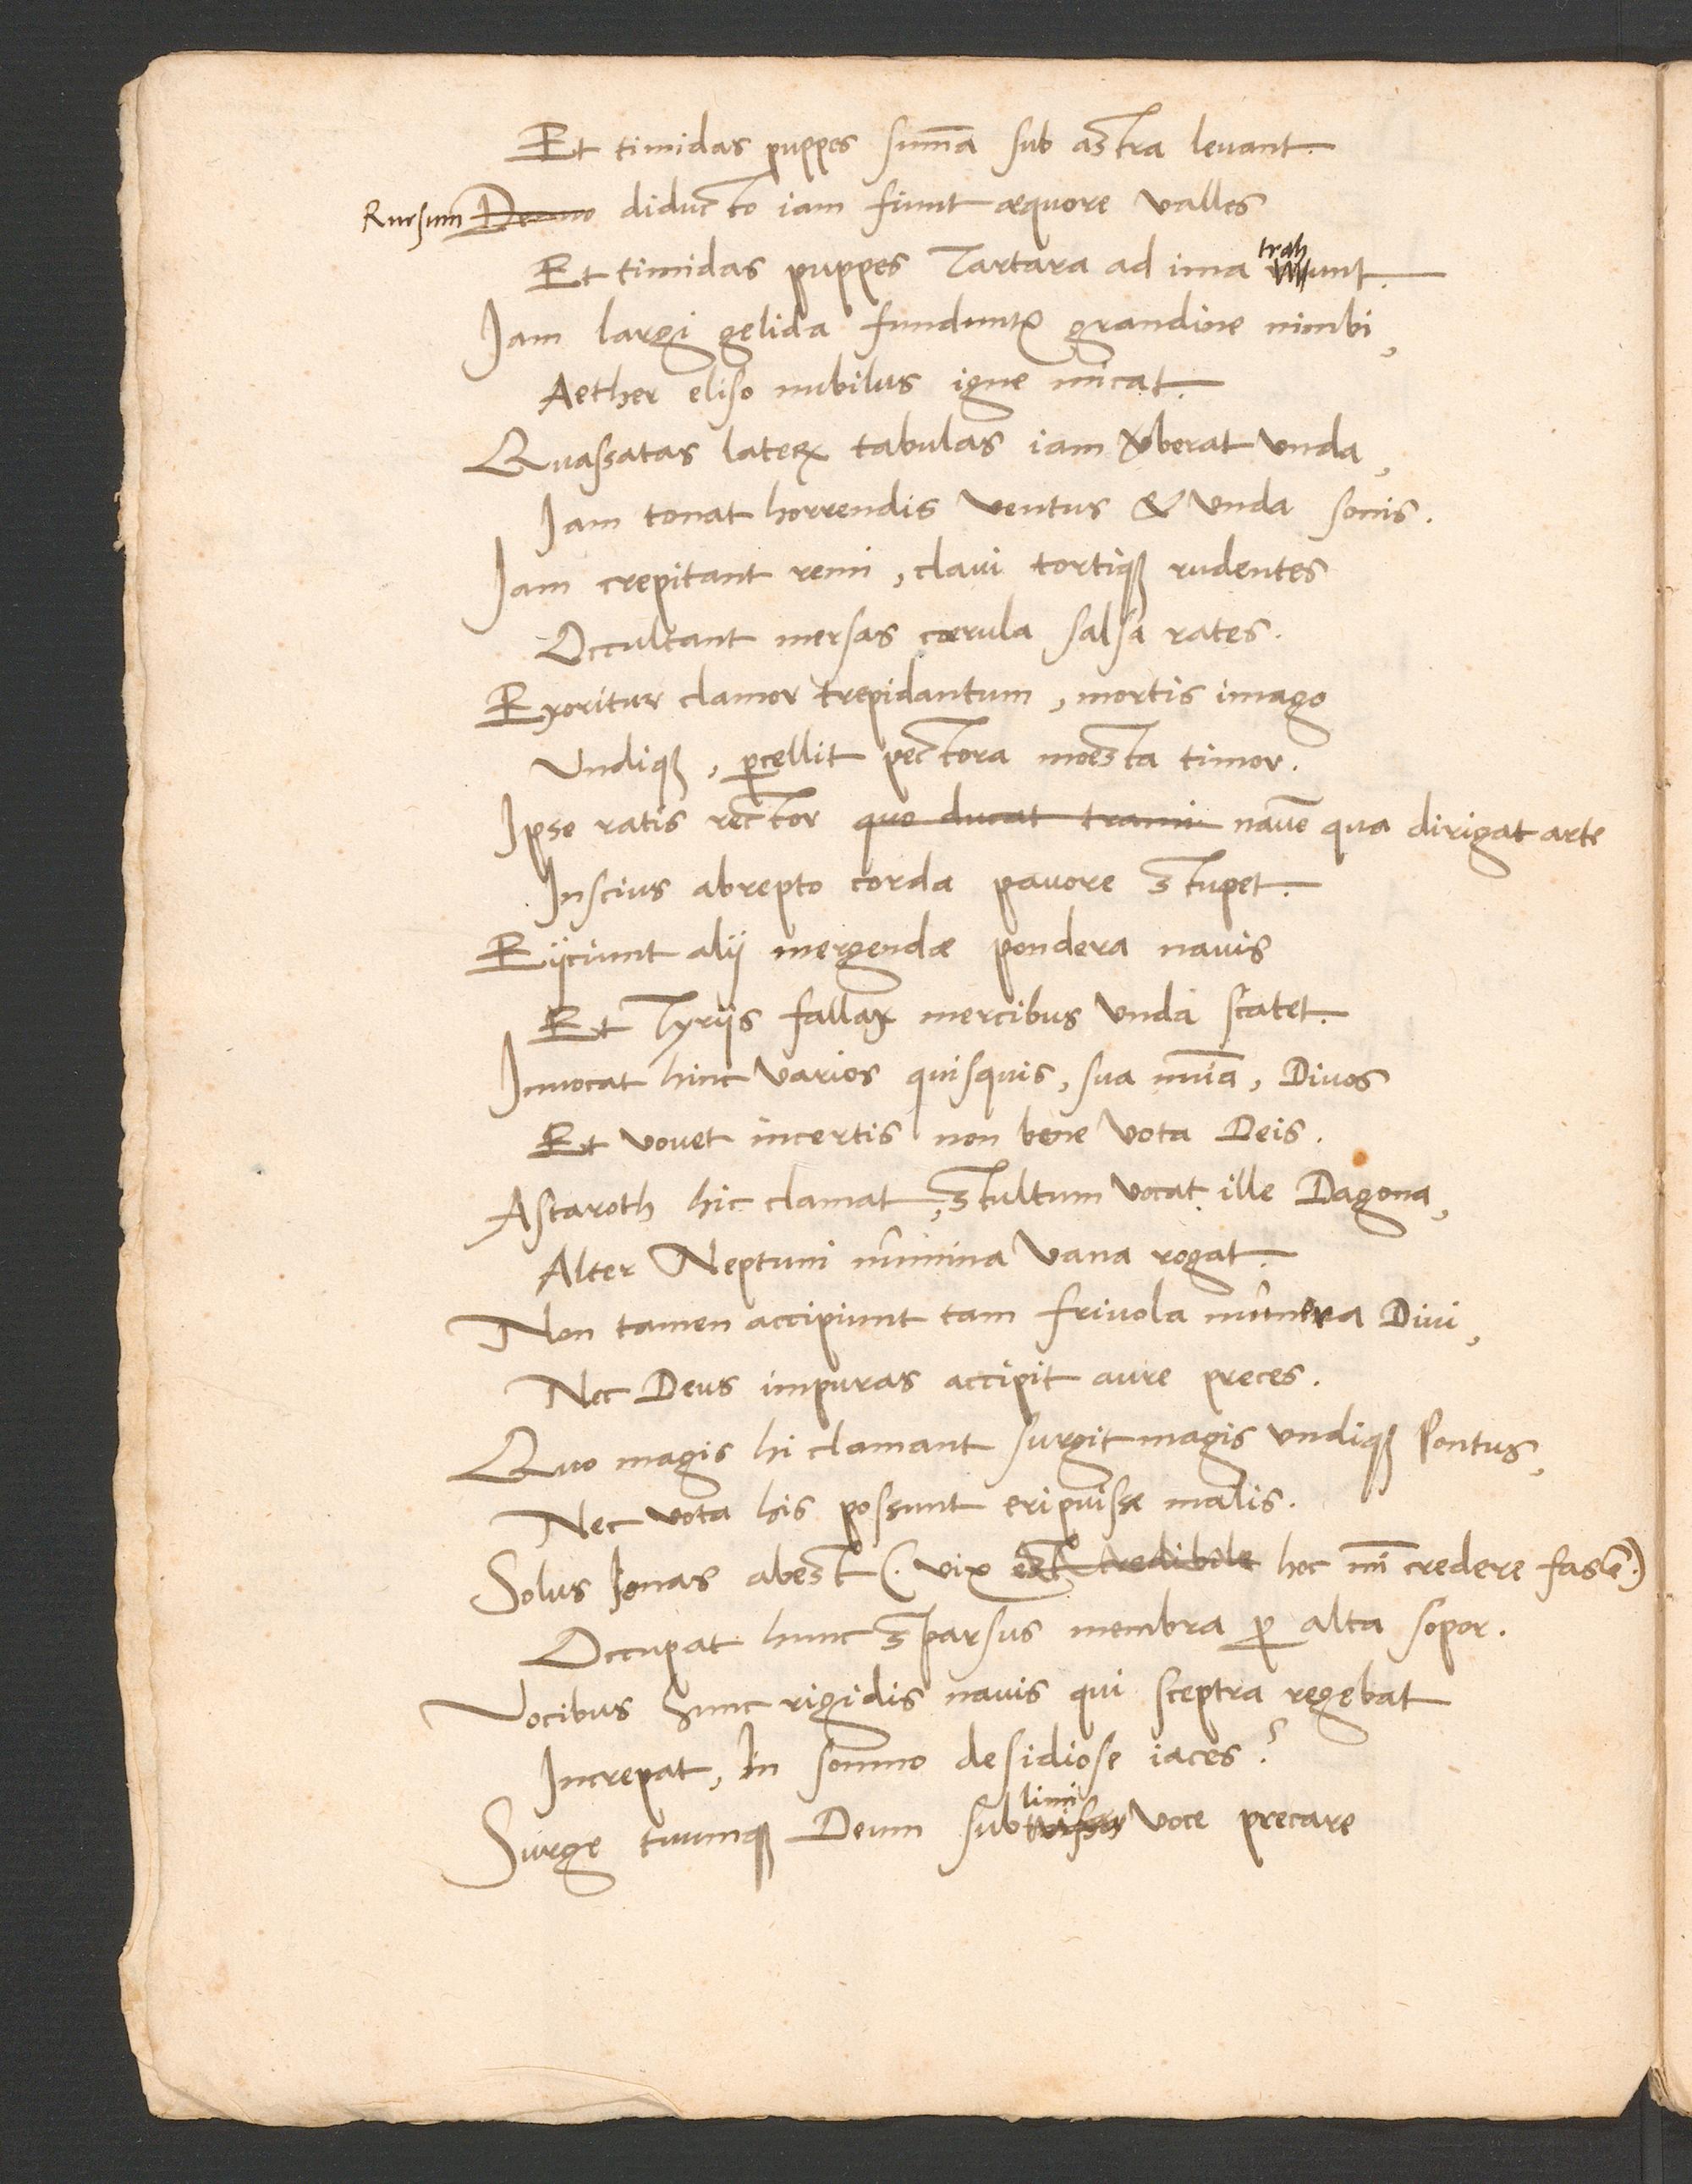 Et timidas puppes sum̄a sub astra leuant.
Rursum Denuo diducto iam fiunt æquore valles
Et timidas puppes Tartara ad ima trahunt.
Iam largi gelida fundunt᷑ grandine nimbi,
Aether eliso nubilus igne micat.
Quassatas laterꝝ tabulas iam v̄berat vnda,
Iam tonat horrendis ventus & vnda sonis.
Iam crepitant remi, claui tortiqꝫ rudentes
Occultant mersas cærula salsa rates.
Exoritur clamor trepidantum, mortis imago
Vndiqꝫ, ꝑcellit pectora moesta timor.
Ipse ratis rector quo ducat trami nauē qua dirigat arte
Inscius abrepto corda pauore stupet.
Eijciunt alij mergendæ pondera nauis
Et Tyrijs fallax mercibus vnda scatet.
Inuocat hinc varios quisquis, sua nu̅i̅a, Diuos
Et vouet incertis non bene vota Deis.
Astaroth hic clamat, stultum vocat ille Dagona,
Alter Neptuni numina vana rogat.
Non tamen accipiunt tam friuola munera Diui,
Nec Deus impuras accipit aure preces.
Quo magis hi clamant surgit magis vndiqꝫ Pontus,
Nec vota his possunt eripuisse malis.
Solus Ionas abest (vix est credibile hoc m̅i credere fas ē.)
Occupat hunc sparsus membra ꝑ alta sopor.
Vocibus hunc rigidis nauis qui sceptra regebat
Increpat, In somno desidiose iaces?
Surge tuumqꝫ Deum sublimi voce precare